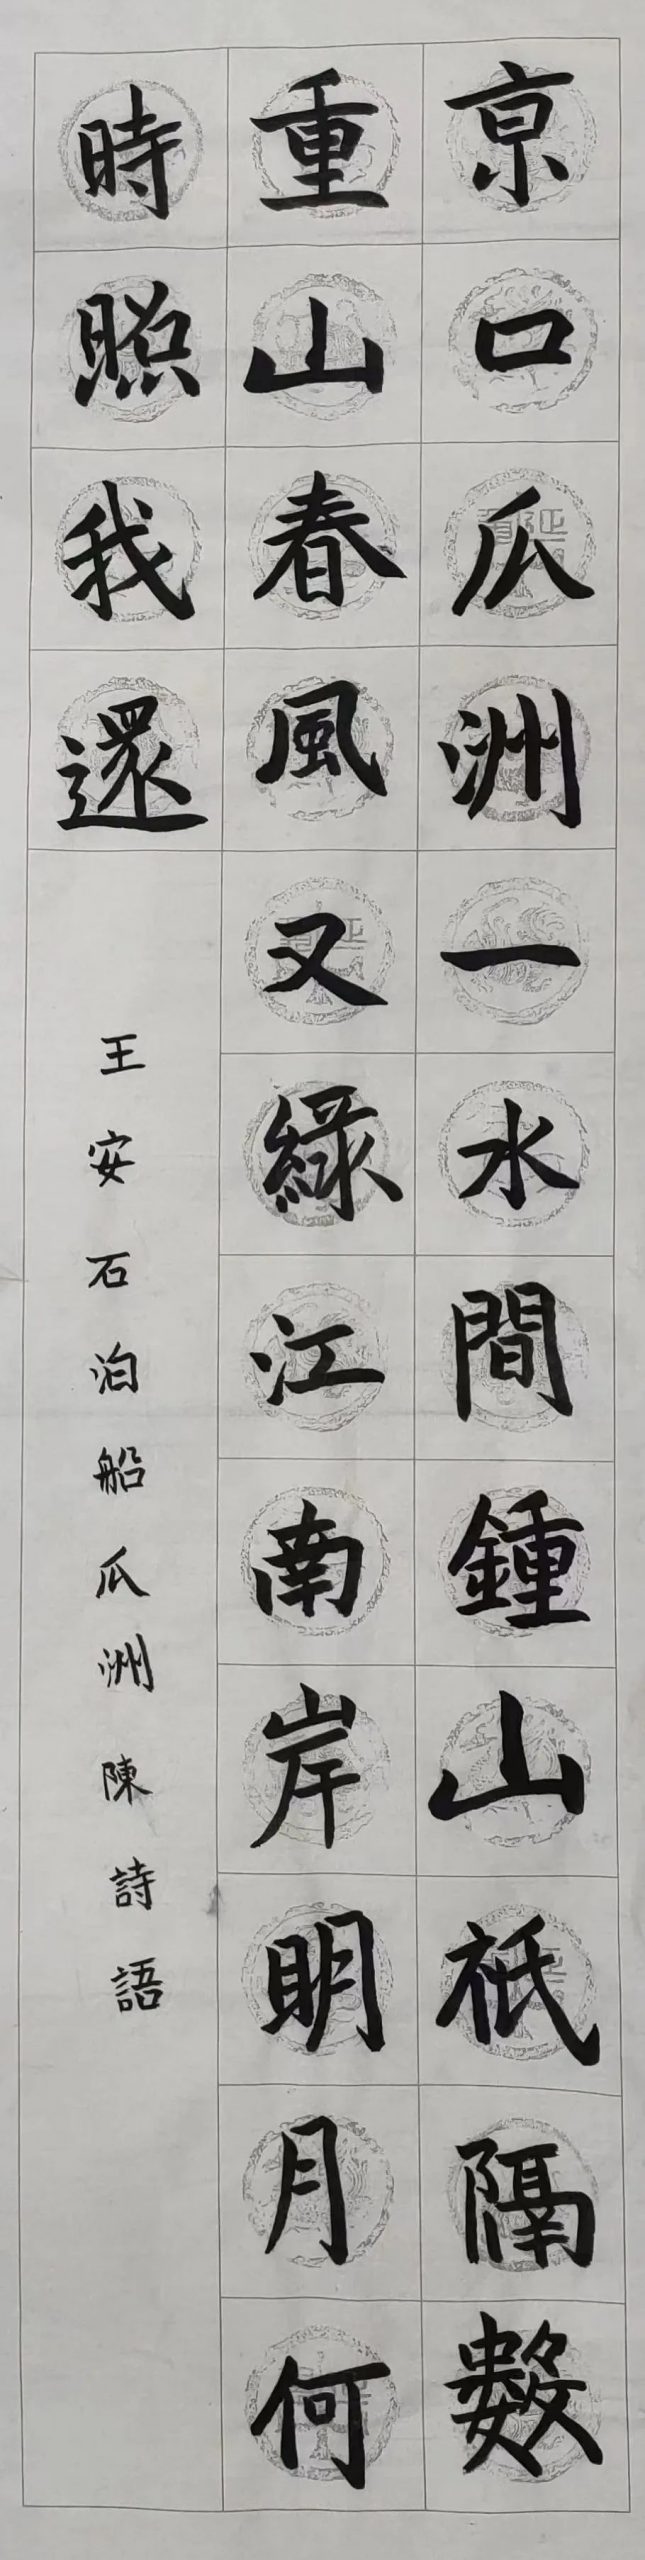 京口瓜洲一水間鍾山祇隔數
重山春風又綠江南岸明月何
時照我還
王安石泊船瓜洲陳詩語